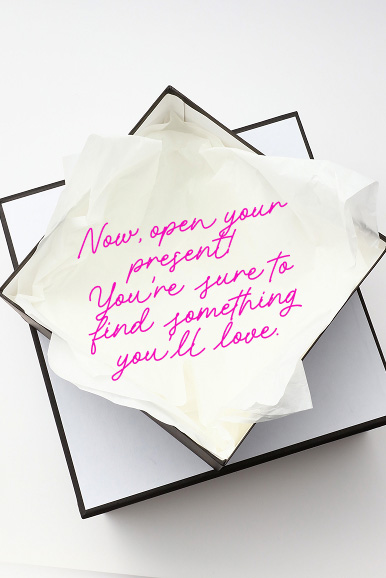 Now, open your
present!
You're sure to
find something
you'll love.